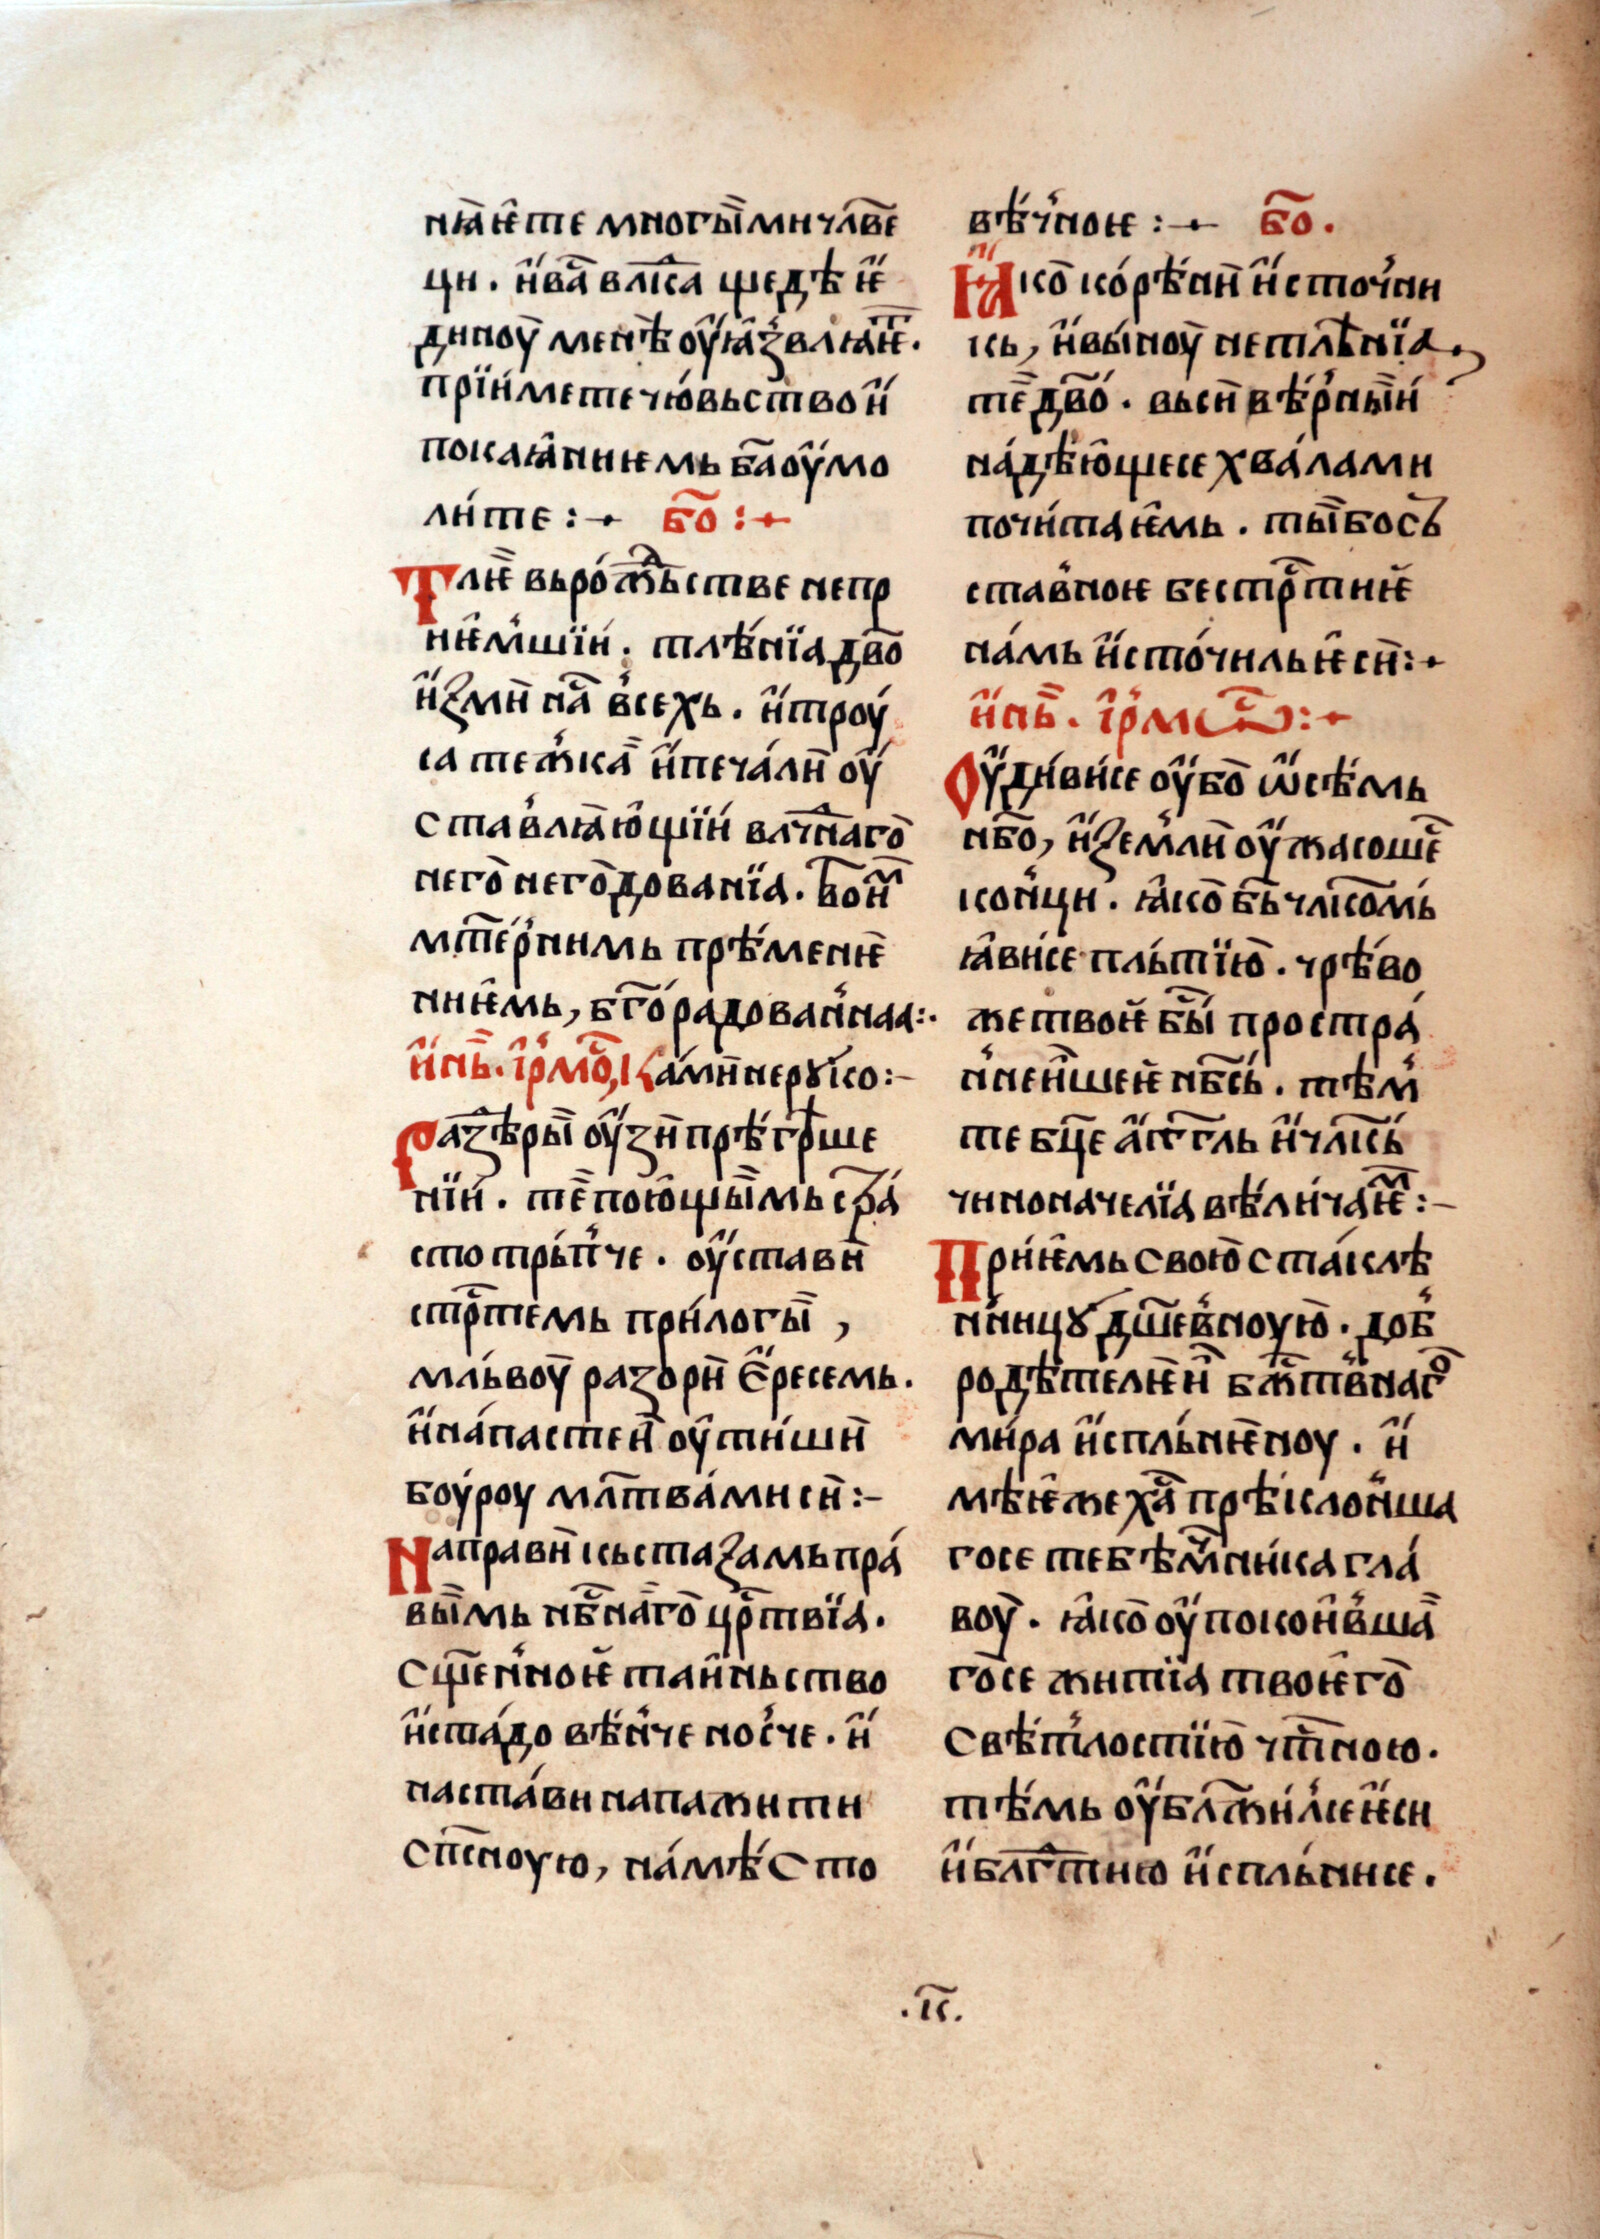 ніа҄ꙗ҆те многы̏ми чл҃вѣ
ци. и҆́ ва̑ вл҃ка щедѣ ѥ҆
диноу̏ менѣ оу҆ꙗ҆звлꙗѥ҆т.
прїи́мете чю́вьство и҆́
покаꙗ́ниѥмь б҃а оу҆́мо
ли́те :+ бо҃ :+
Тлѥ̏ вь ро́ж҃ьстве непр
иѥ҆́мшїи́. тлѣ́нїа дв҃о
и҆́зми̏ на̑ в́сехь. и҆́ троу́
са те́жка̏ и҆́ печа́ли̏ оу҆́
ставлꙗ́ю҆щїи́ вл҃чнаго̏
него̏ него̏дованїа. бо҃и҆м
мт҃е́рнимь прѣ́менѥ̏
ниѥ҆мь, б҃го ра́дован́наа :·
и҆́нь̏. і҆рмо҃с, Ка́мы̏ неруко :–
Разѣры̏ оу҆́зи̏ прѣ́гр҃ше
нїи́. те̏ пою҆́щы̏мь ст҃ра́
стотрь́пче. оу҆́ставы̏
стр҃темь при́логы̏,
мль́воу̏ разори̏ є҆́ресемь.
и҆́ на́пастеи̏ оу҆ти́ши̏
боу́роу мл҃тва́ми си̏ :–
Направи̏ кь стаза́мь пра́
вы̏мь нб҃наго̏ цр҃твїа.
сщ҃ен́ноѥ̏ таи̑ньство
и҆́ ста́до вѣ́нче но́сче. и҆́
наста́ви на пажити
сп҃сноую, на́ мѣ́сто
вѣ́чноѥ :–+ бо҃.
Ꙗ҆ко̏ ко́рѣни̏ и҆́сточни
кь, и҆́ вы́ноу̏ нетлѣ́нїа.
те̏ дв҃о́. вьси̏ вѣ́рны̏и́
на́дѣ́ю҆щесе хва́лами
почи́таѥ҆мь. ты̏ бо съ
став́ноѥ бестр҃тниѥ̏
на́мь и҆́сто́чиль ѥ҆си̏ :+
и҆́нь̏. і҆́рмос :+
Оу҆́ди́висе оу҆́бо̏ ѡ҆́ сѣ́мь
нб҃о, и҆́ земли̏ оу҆́жасоше̏
кон́ци. ꙗ҆ко̏ бь҃ чл҃ко́мь
ꙗ҆ви́се пль́тїю̏. чрѣ́во
же твоѥ̏ бы̑ простра́
н́неи̏шеѥ̏ нб҃сь́. тѣ́м́
те бц҃е а҆́гг҃ль и҆́ чл҃кь́
чиноначелїа вѣли́чаѥ҆м :–
Приѥ҆́мь свою̏ ста́клѣ
н́ницꙋ дш҃ев́ноую̏. доб́
родѣте́лѥи̏ бж҃тв́наго
ми́ра и҆́спль́нѥ̏ноу. и҆́
мѣ́ѥ҆же ха҃ прѣ́клон́ша
госе тебѣ́ м́ни́ка гла́
воу̏. ꙗ҆ко̏ оу҆́покои҆́вша̏
го̏се житіа твоѥ҆го̏
свѣ́тлостїю̏ чт҃ною.
тѣ́мь оу҆́бл҃жи́лсе ѥ҆си
и҆́ бл҃гтию и҆́спль́нисе.
.к҃.